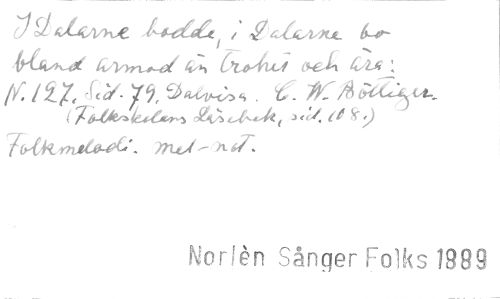 I Dalarne bodde, i Dalarne bo
bland armod än trohet och ära:
N. 127, Sid. 79, Dalvisa. C. W. Böttiger.
(Folkskolans Läsebok, sid. 108.)
Folkmelodi. met-not.
Norlèn Sånger Folks 1889